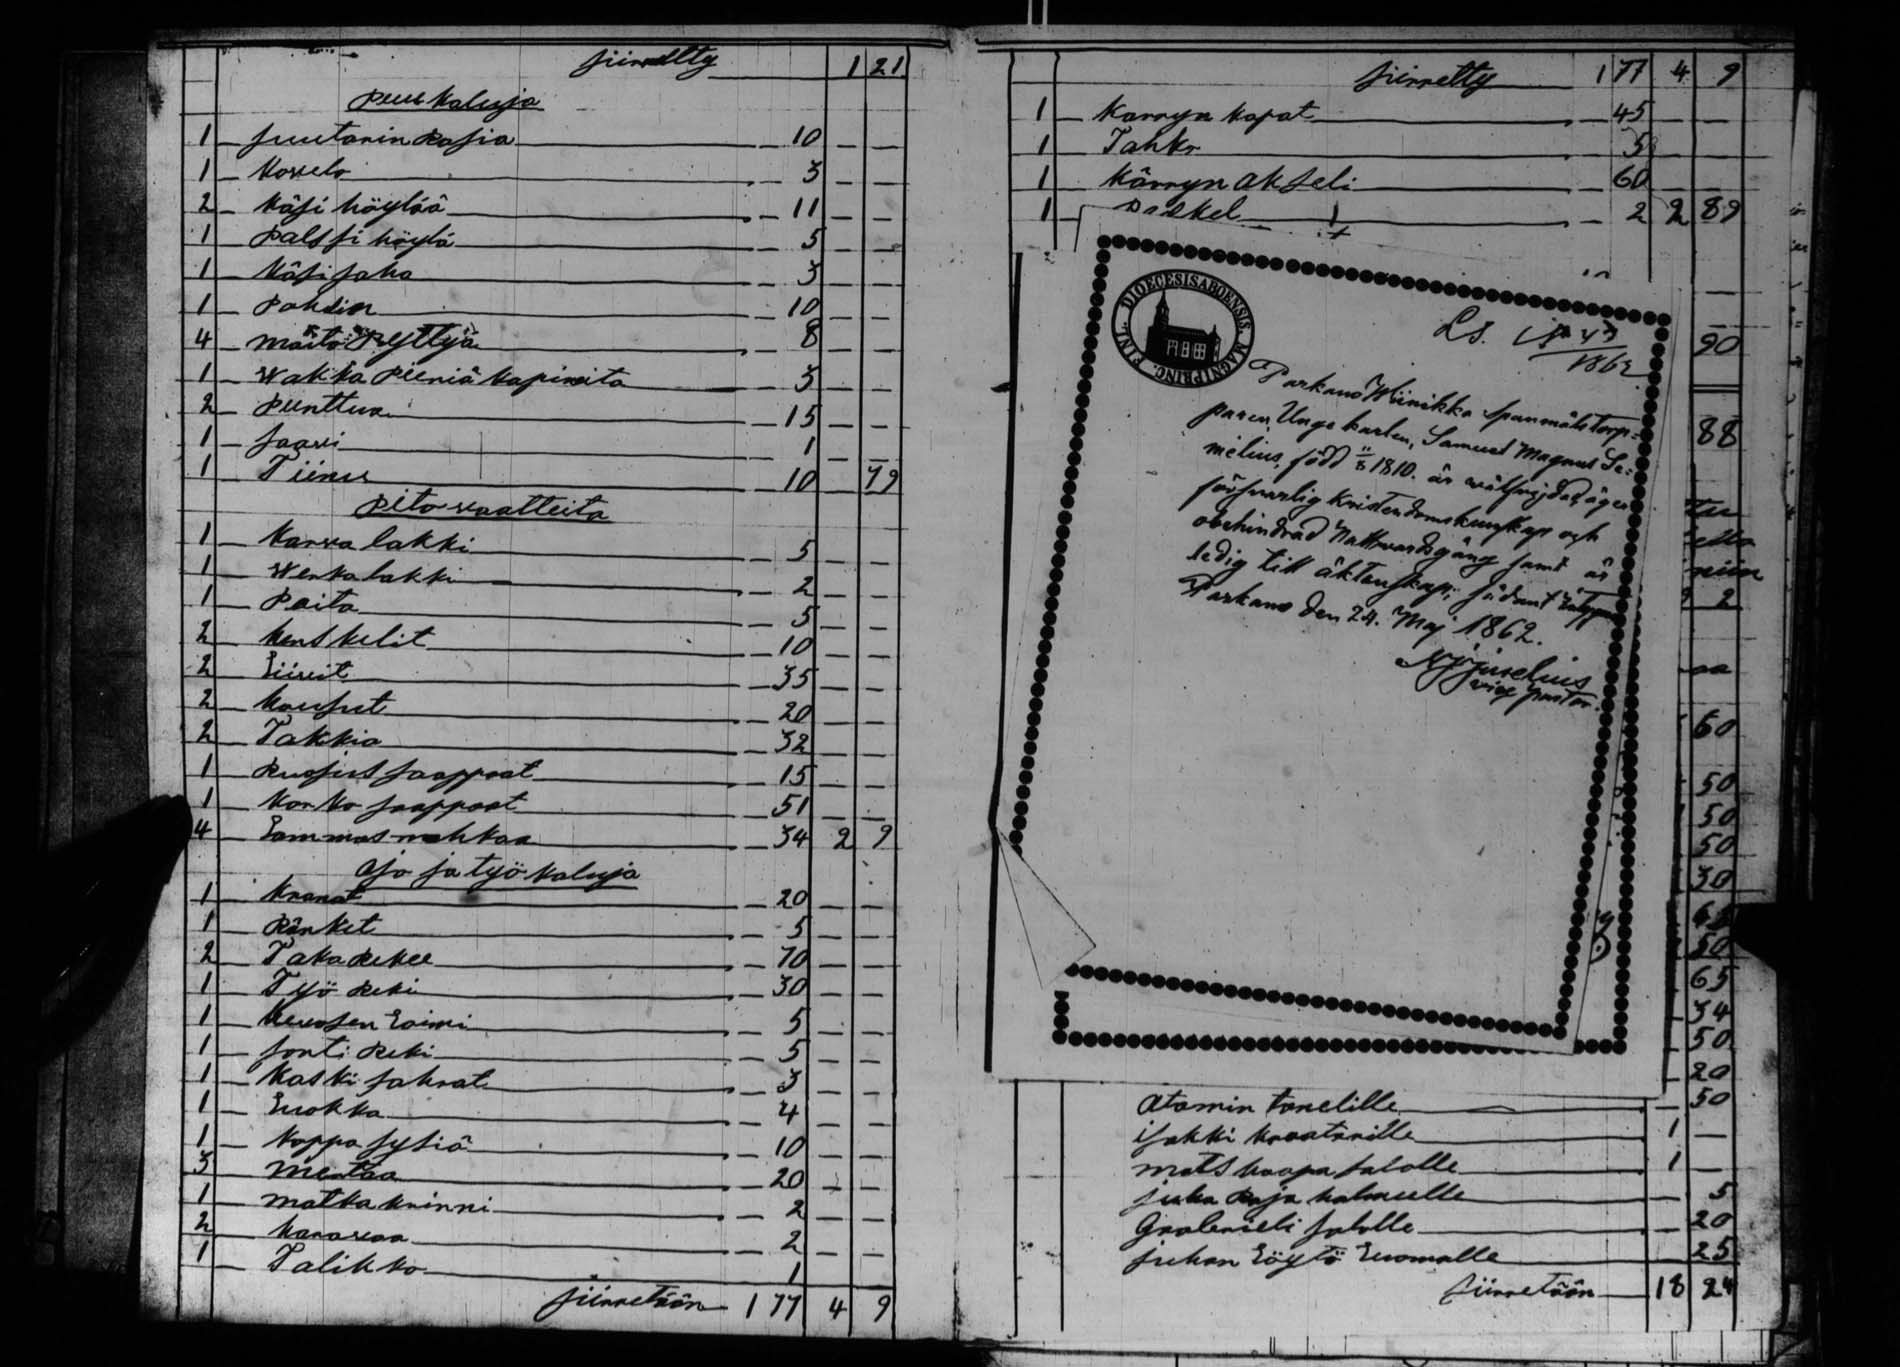 siirretty 1 21
Puu Kaluja
1 suutarin Rasia 10
1 Kovelo 3
2 Käsi höylää 11
1 Palssi höylä 5
1 Käsi saha 3
1 Pahdin 10
4 maito Pyttyä 8
1 Wakka Pieniä kapineita 3
2 Punttua 15
1 saavi 1
1 Tiinu 10 79
Pito vaatteita
1 Karva lakki 5
1 Werka lakki 2
1 Paita 5
2 Henskelit 10
2 Liivit 35
2 Housut 20
2 Takkia 32
1 Ruojus saappaat 15
1 Korko saappaat 51
4 Lammas nahkaa 34 2 9
Ajo ja työ kaluja
1 Kranat 20
1 Ränket 5
2 Taka Rekee 70
1 Työ Reki 30
1 Hevosen Loimi 5
1 sonti Reki 5
1 Kaski sahrat 3
1 Luokka 4
1 Koppa sysiä 10
3 20
1 matka krinni 2
2 Haravaa 2
1 Talikko 1
siirretään 177 4 9
siirretty 177 4 9
1 Karryn Kapat 45
1 Tahko 5
1 Kärryn akseli 60
1 2 2 89
DIOECESIS ABOENSIS. MAGNI PRINC. FINL.
L.S.
1862
Parkano Wiinikka spannmålstorp-
paren, Unge karlen, Samuel Magnus Se-
melius, född 1810. är wälfrejdad, äger
försvarlig Kristendomskunskap och
obehindrad Nattvardsgång samt är
ledig till äktenskap; sådant
Parkano den 24. Maj 1862.
vice pastor.
90
88
2
60
50
50
50
30
50
65
34
50
20
Atamin tanelille 50
isakki Kraatarille 1
mats haapa salolle 1
juha Raja halmeelle 5
Graberieli salolle 20
juhan Löytö Luomalle 25
siirretään 18 24